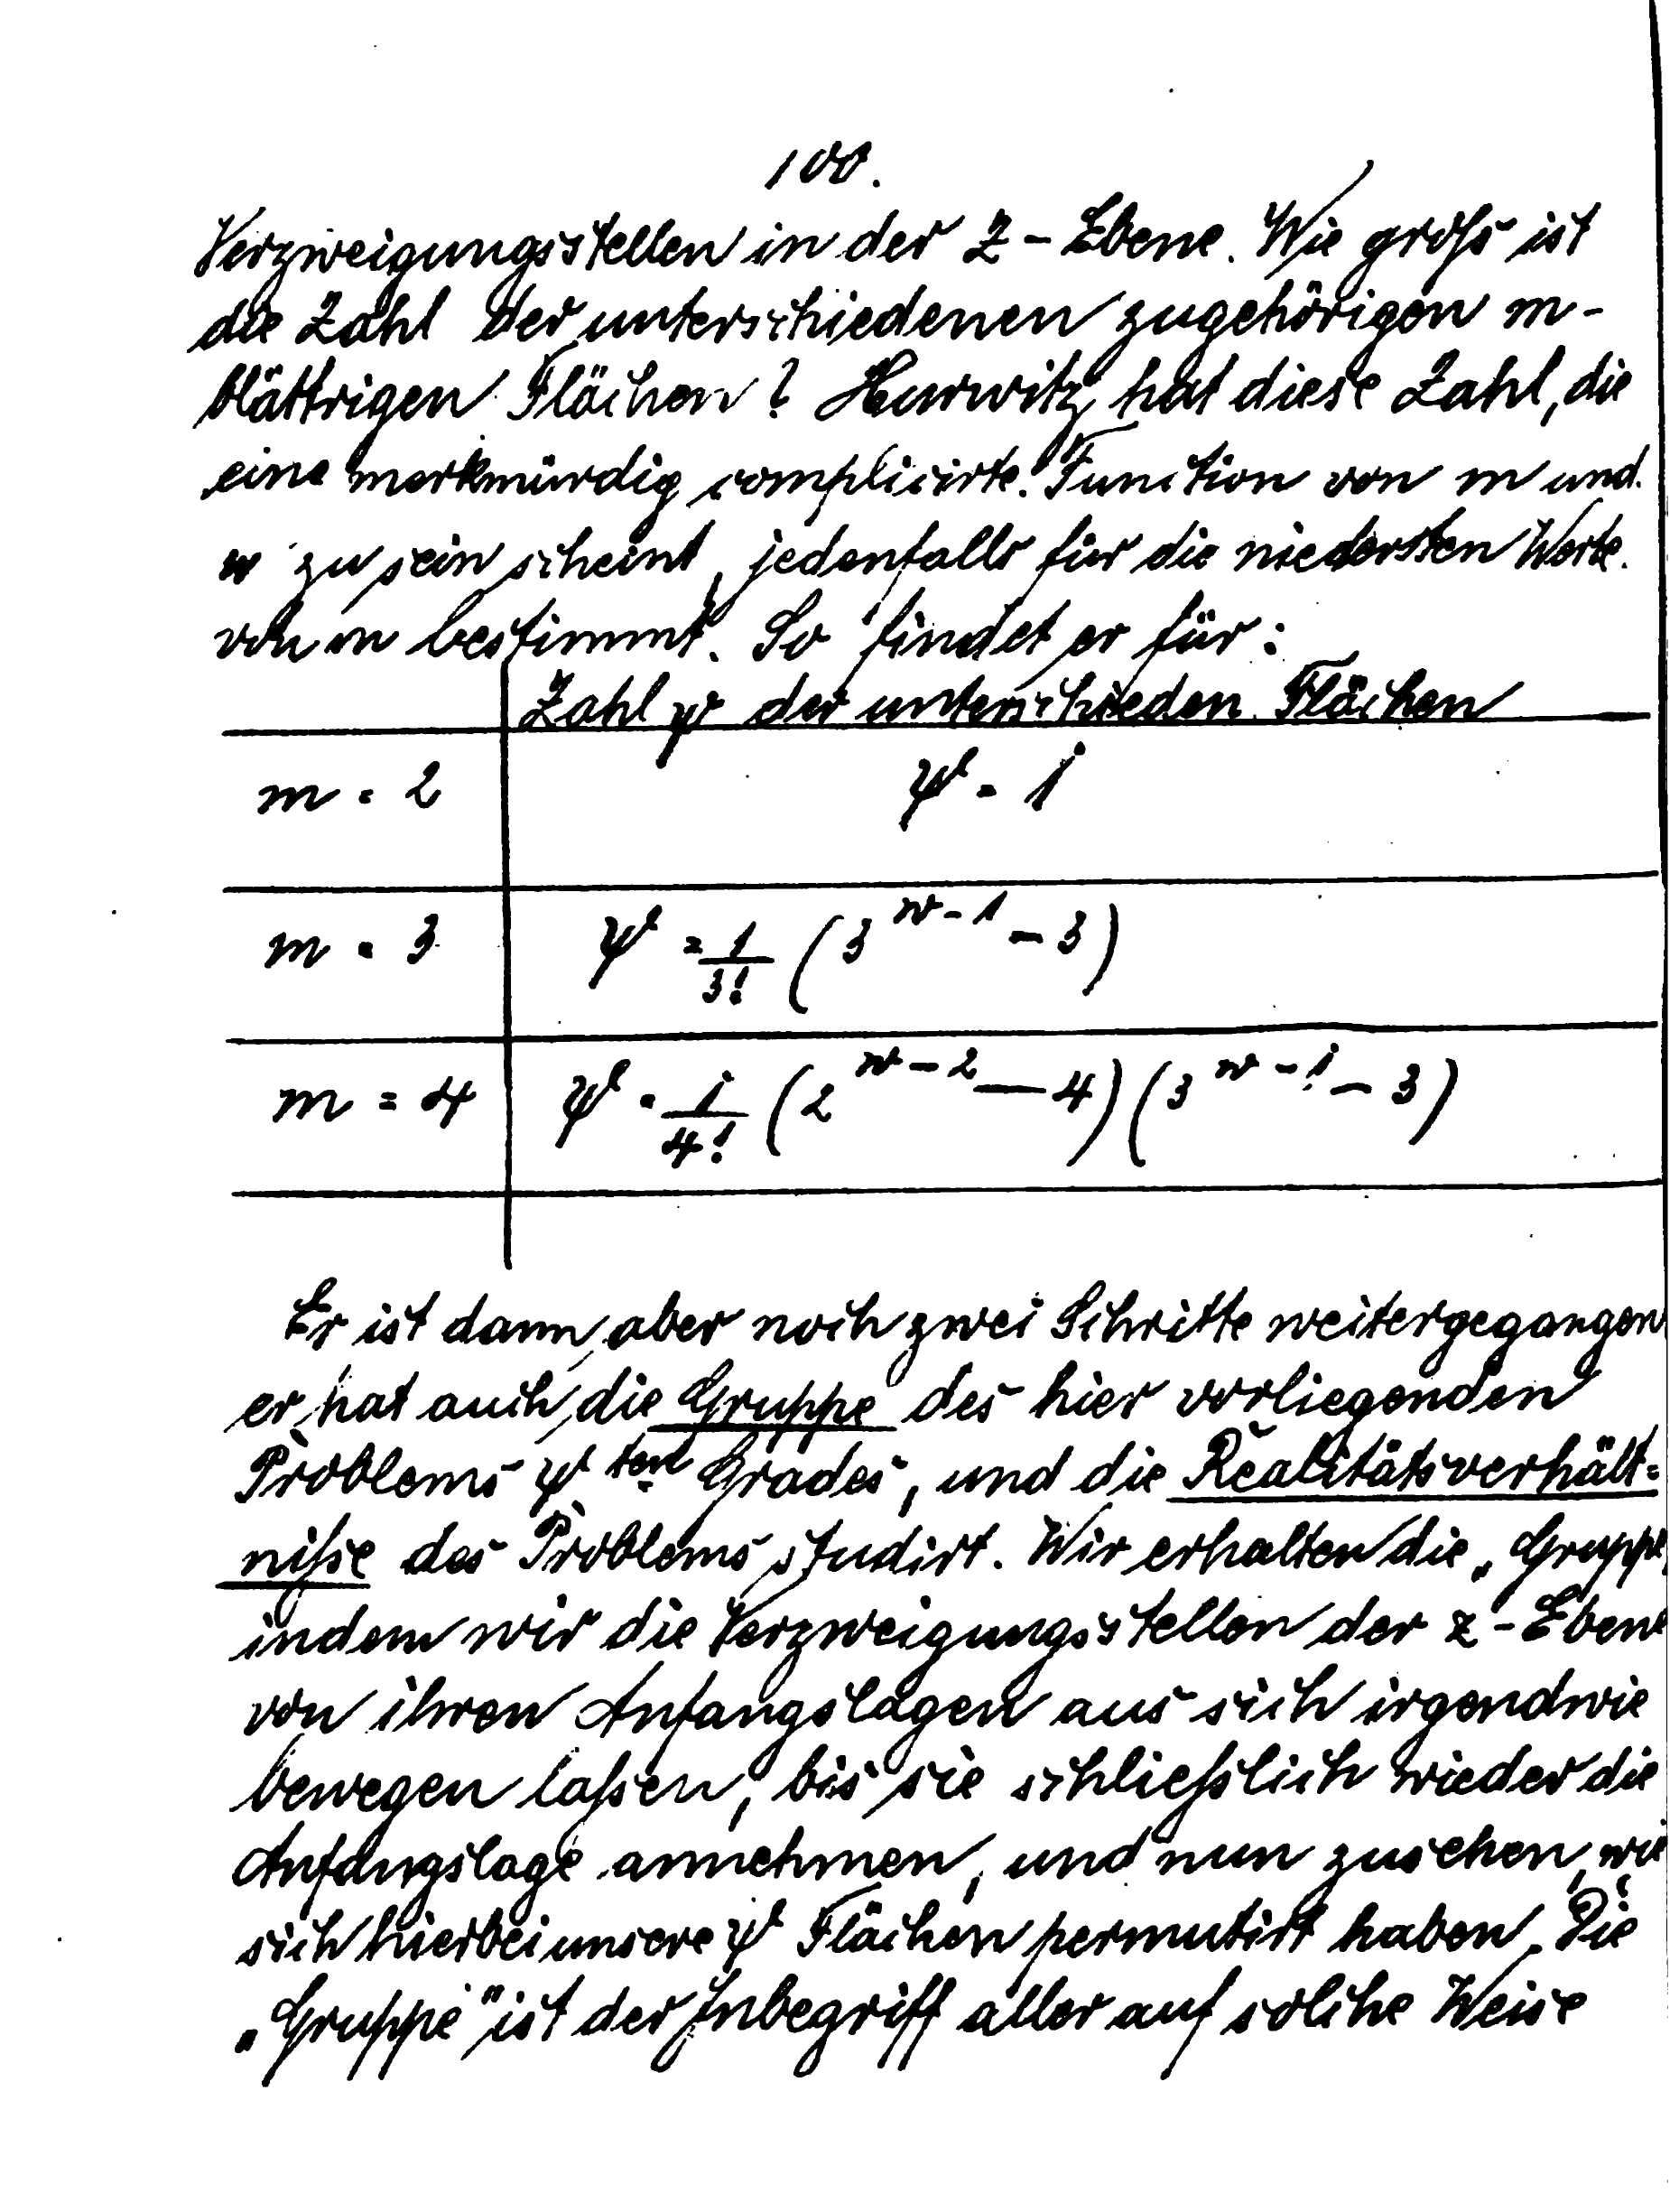 100.
Verzweigungsstellen in der Z-Ebene. Wie groſs ist
die Zahl der unterschiedenen zugehörigen m-
blättrigen Flächen? Hurwitz hat diese Zahl, die
eine merkwürdig complicirte Function von m und
w zu sein scheint, jedenfalls für die niedersten Werte
von m bestimmt. So findet er für:
Zahl ψ der unterschieden Flächen
m = 2 ψ = 1
m = 3 ψ = 1/3! (3^{w-1} - 3)
m = 4 ψ = 1/4! (2^{w-2} - 4)(3^{w-1} - 3)
Er ist dann aber noch zwei Schritte weitergegangen
er hat auch die Gruppe des hier vorliegenden
Problems ψ ten Grades, und die Realitätsverhält=
niſse des Problems studirt. Wir erhalten die „Gruppe
indem wir die Verzweigungsstellen der z-Ebene
von ihren Anfangslagen aus sich irgendwie
bewegen laſsen, bis sie schlieſslich wieder die
Anfangslage annehmen, und nun zusehen, wie
sich hierbei unsere ψ Flächen permutirt haben. Die
„Gruppe" ist der Inbegriff aller auf solche Weise